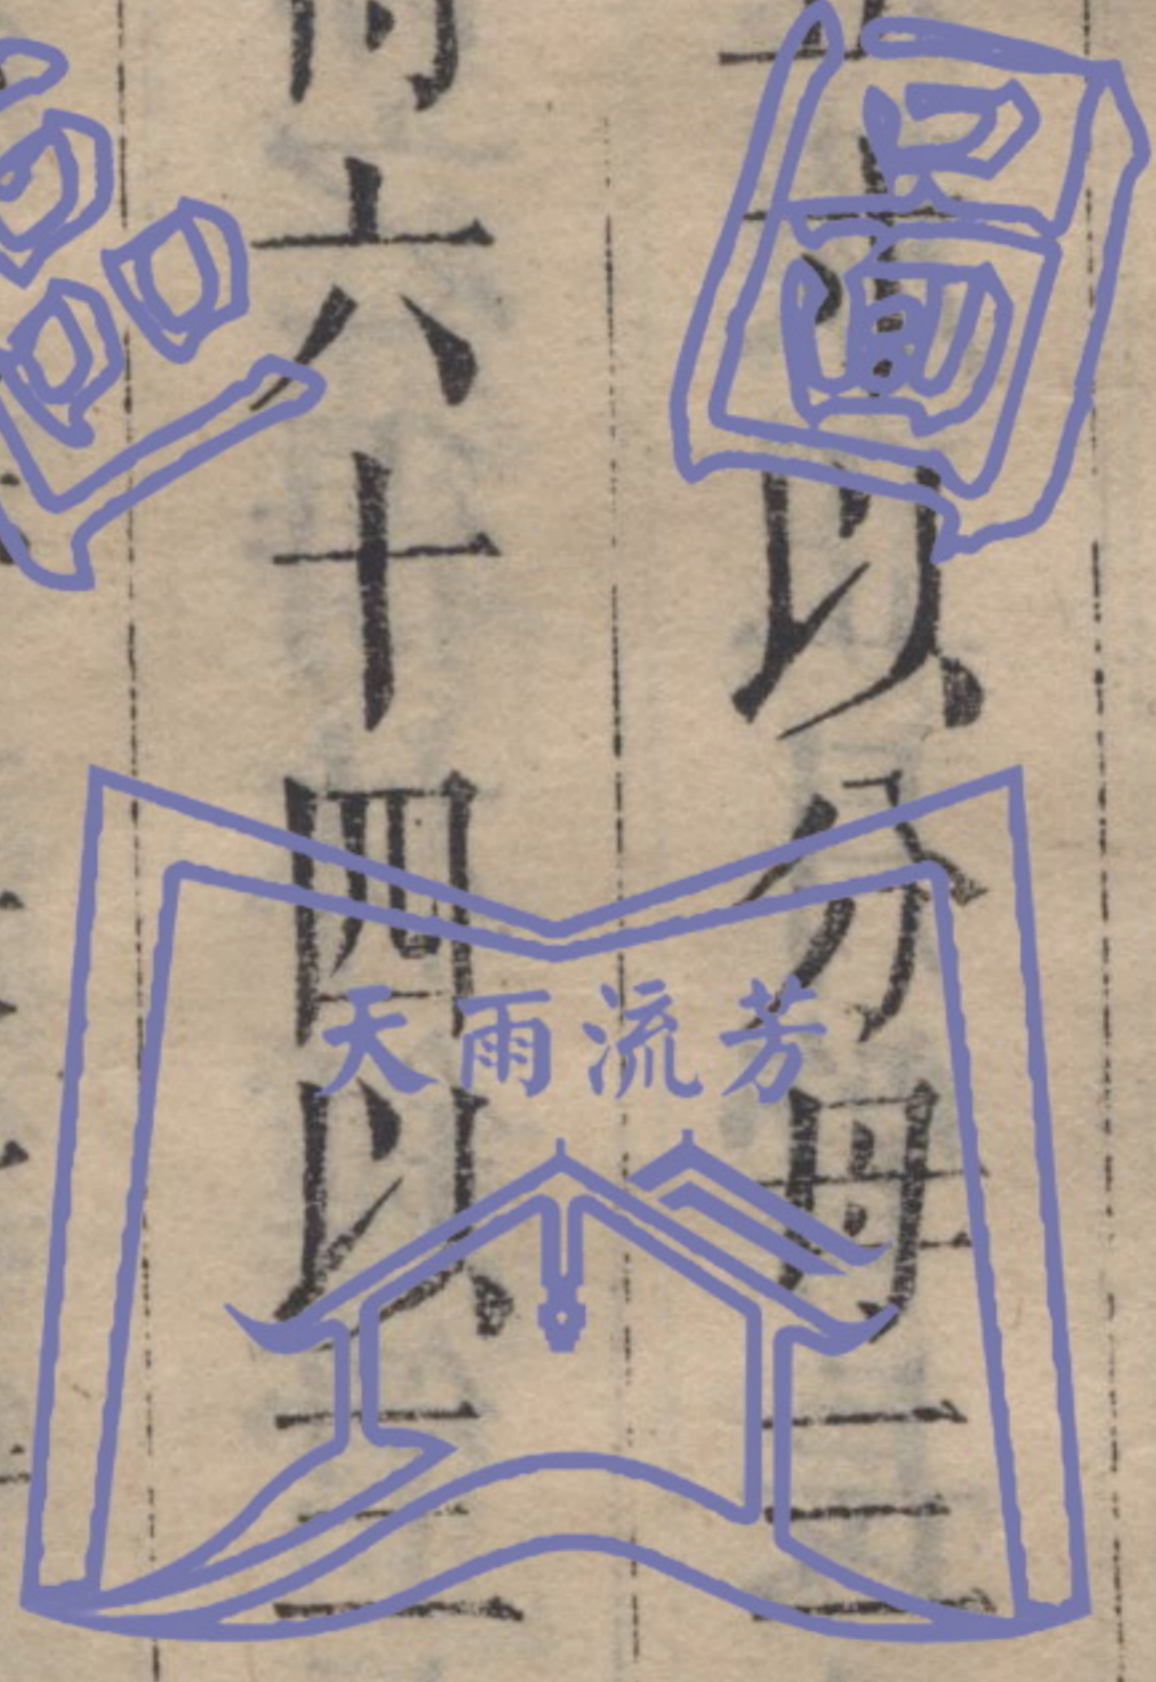 以分母三
六十四以三
圖
天雨流芳